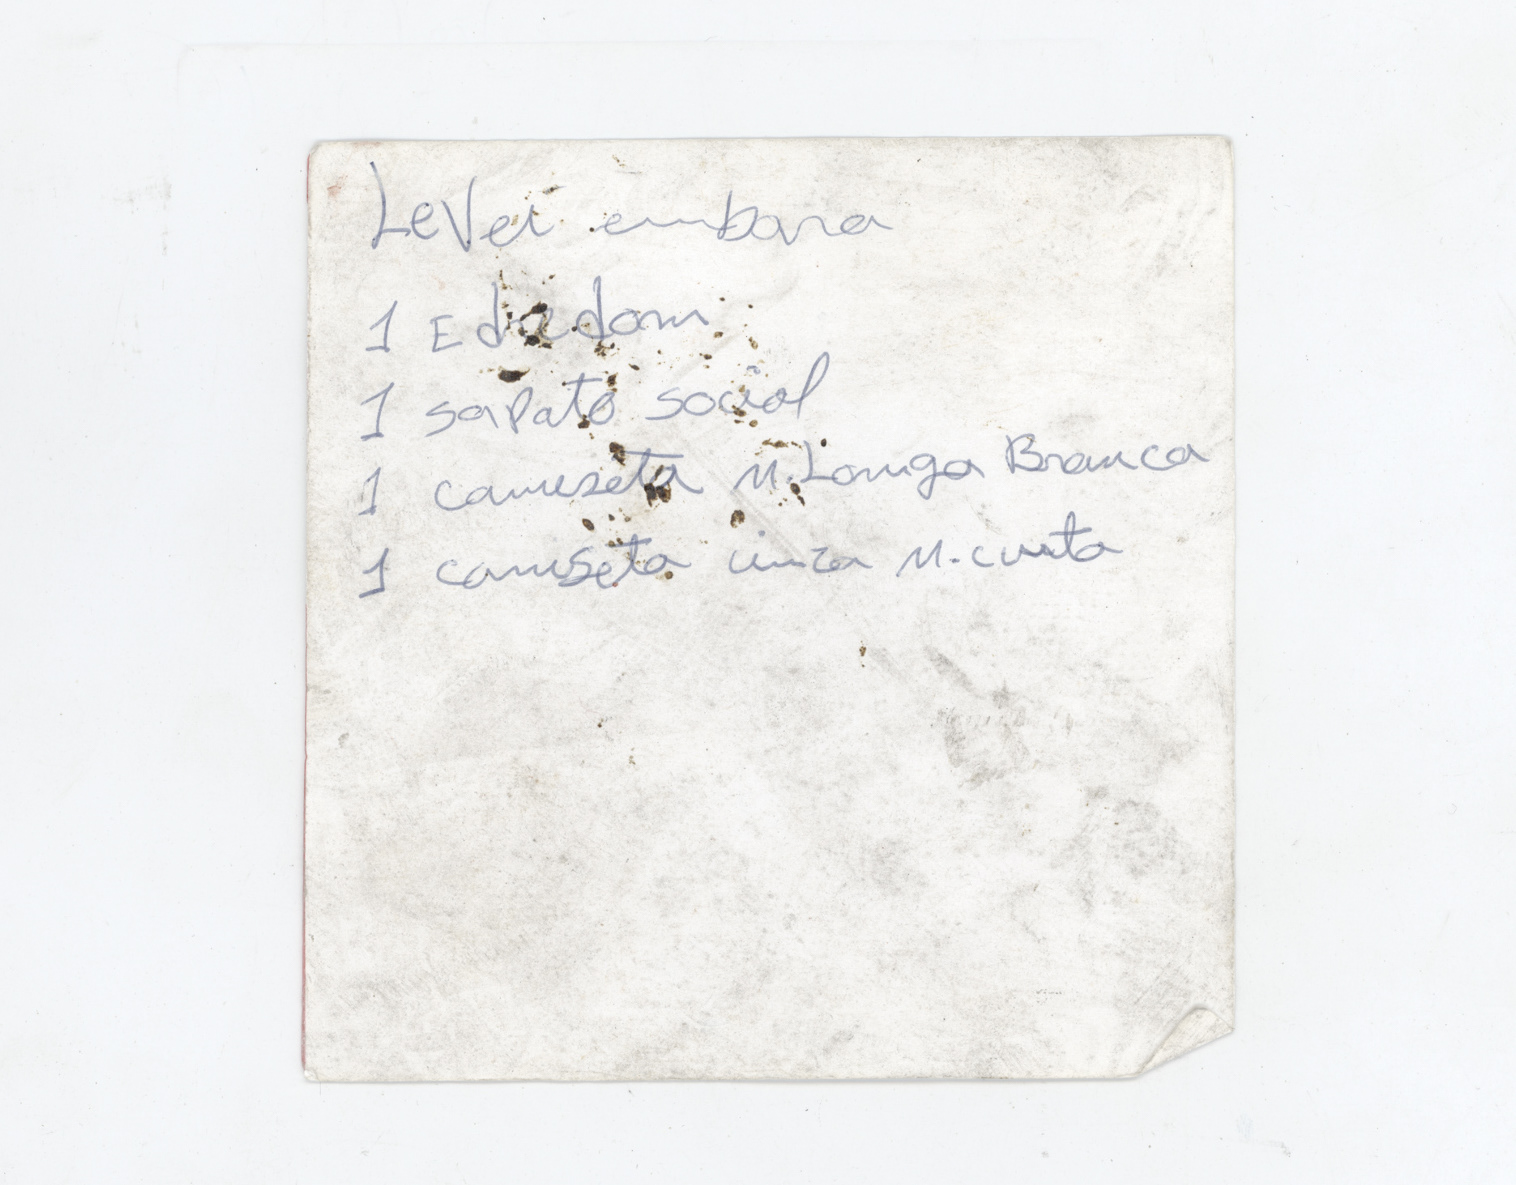 Levei embora
1 Edredom
1 sapato social
1 camiseta M. Longa Branca
1 camiseta cinza M. curta